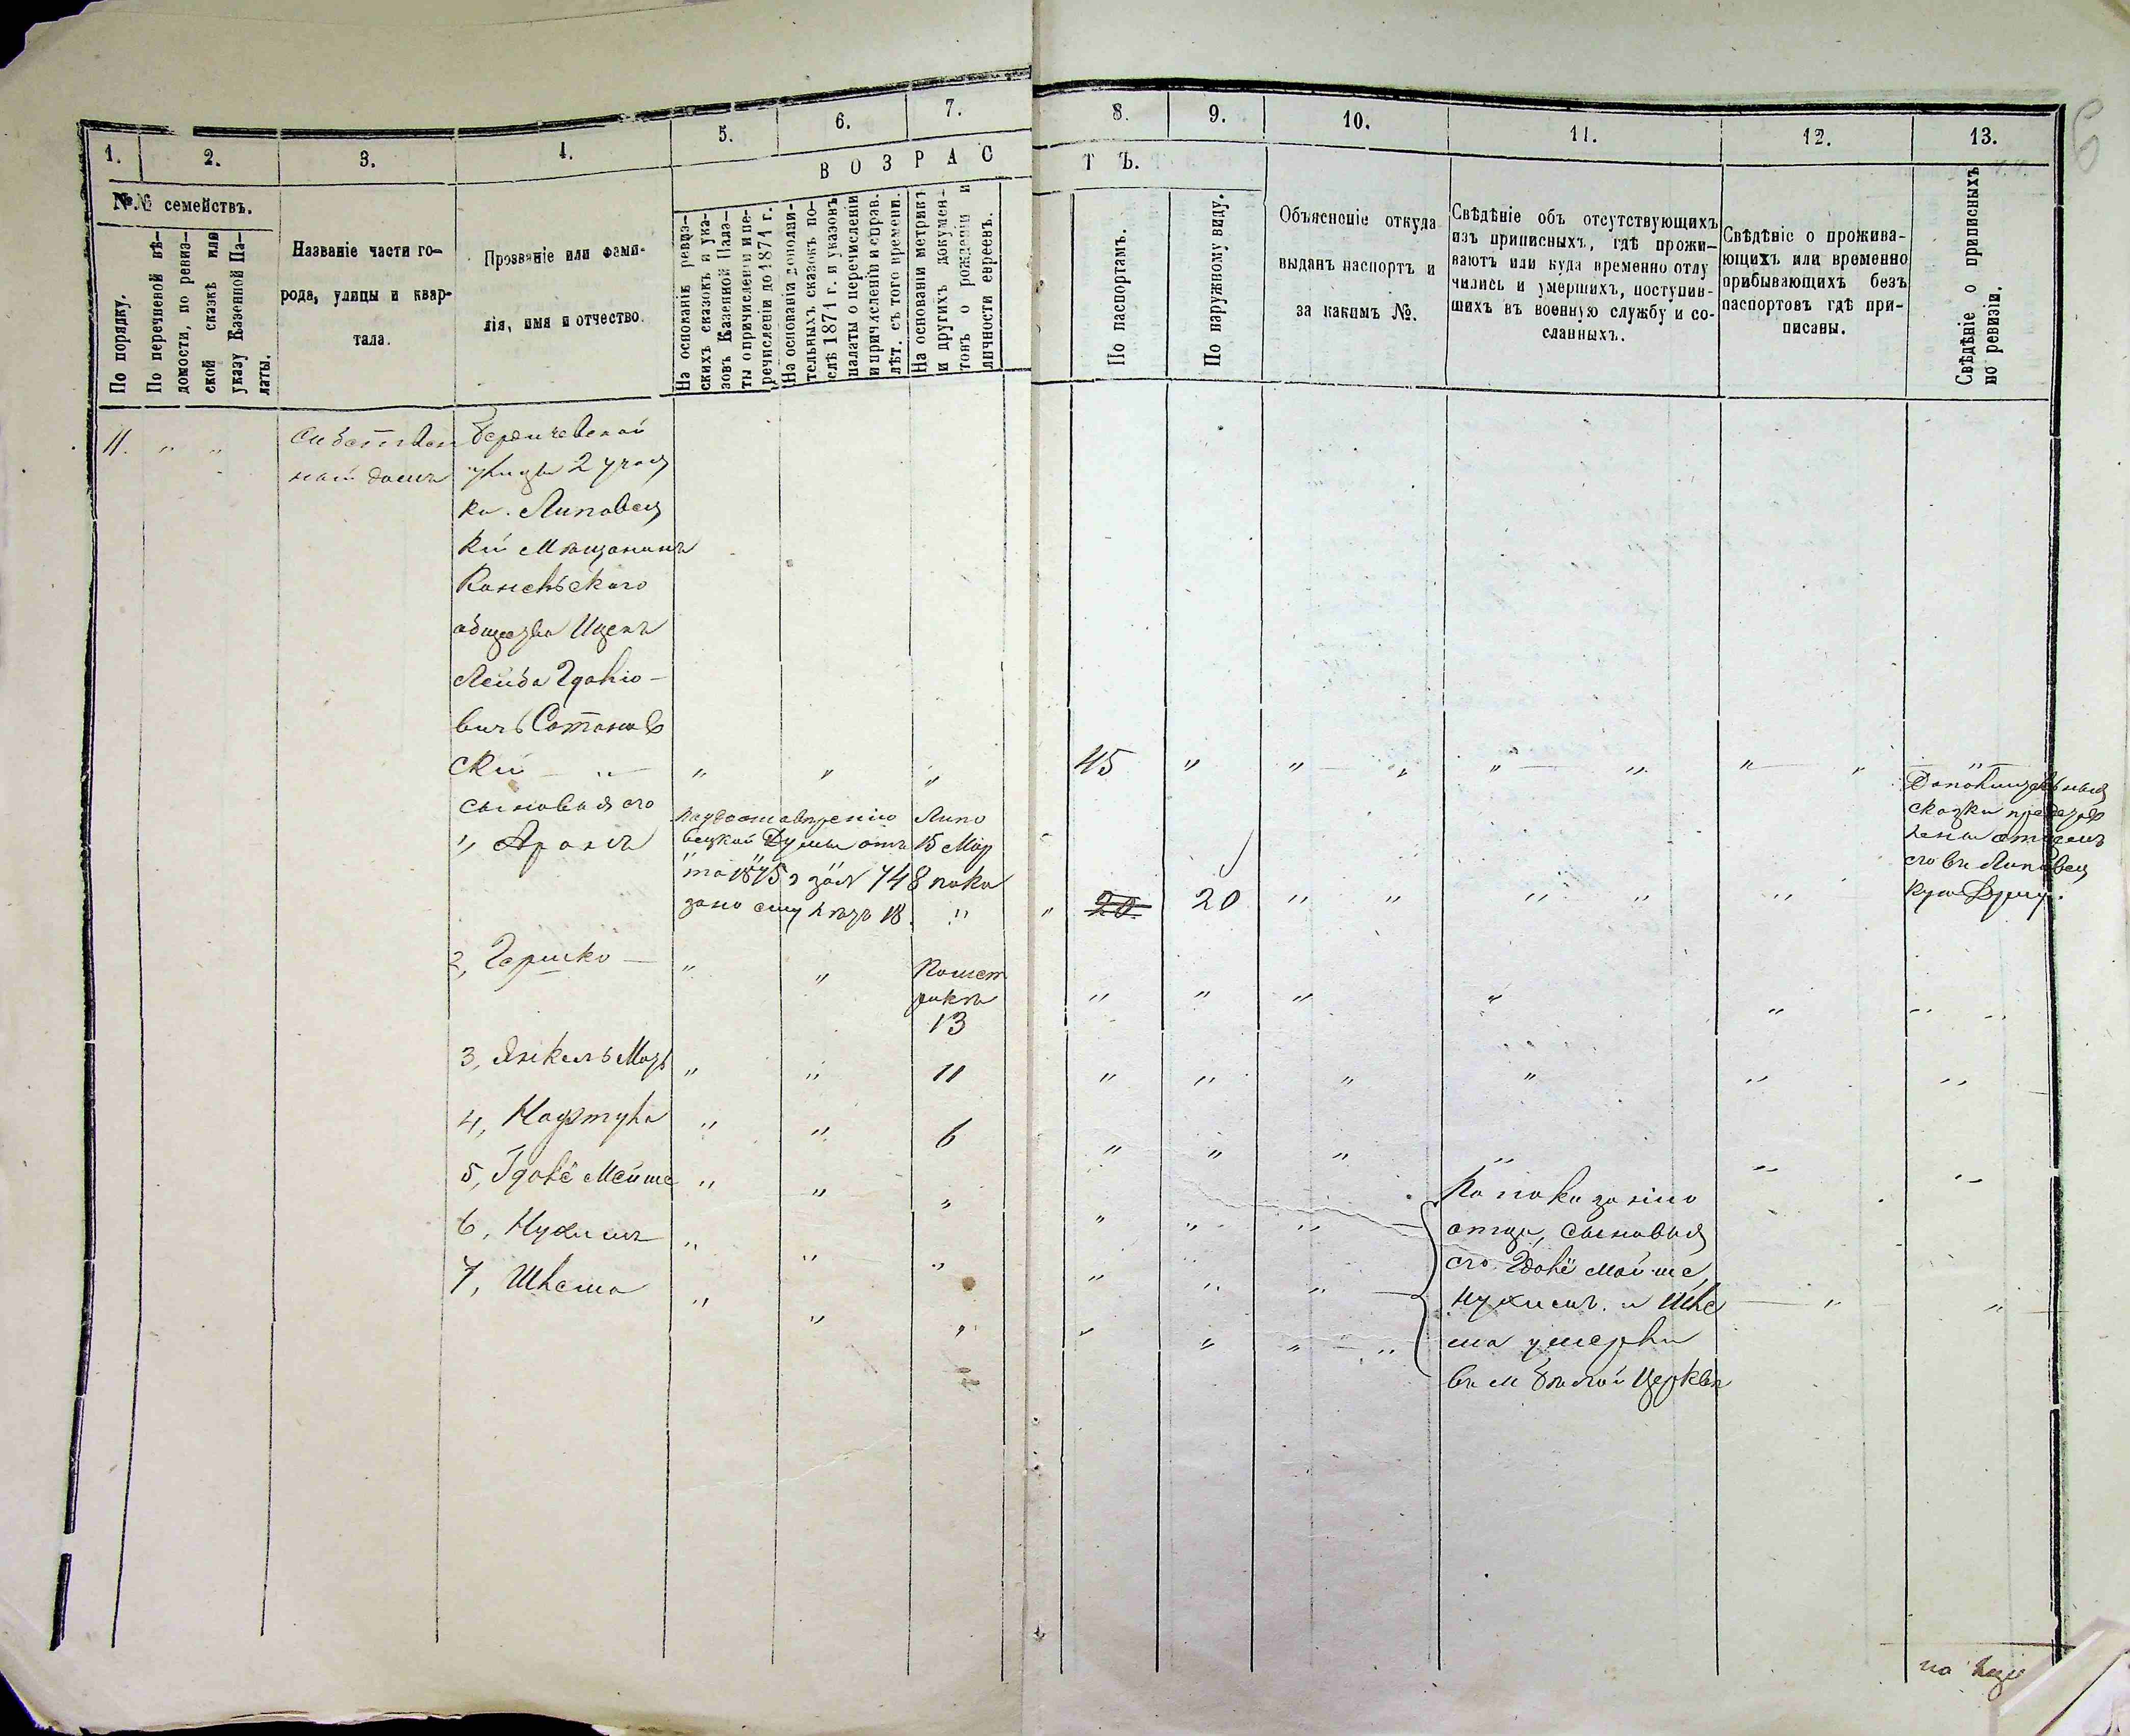 1. 2. 3. 4. 5. 6. 7. 8. 9. 10. 11. 12. 13.
В О З Р А С Т Ъ.
№№ семействъ.
По порядку.
По перечневой вѣ-
домости, по ревиз-
ской сказкѣ или
указу Казенной Па-
латы.
Названіе части го-
рода, улицы и квар-
тала.
Прозваніе или фами-
лія, имя и отчество.
На основаніи ревиз-
скихъ сказокъ и ука-
зовъ Казенной Пала-
ты о причисленіи и пе-
речисленіи до 1874 г.
На основаніи дополни-
тельныхъ сказокъ по-
слѣ 1874 г. и указовъ
палаты о перечисленіи
и причисленіи и справ.
лѣт. съ того времени.
На основаніи метрикъ
и другихъ докумен-
товъ о рожденіи и
личности евреевъ.
По паспортамъ.
По наружному виду.
Объясненіе откуда
выданъ паспортъ и
за какимъ №.
Свѣдѣніе объ отсутствующихъ
изъ приписныхъ, гдѣ прожи-
ваютъ или куда временно отлу
чились и умершихъ, поступив-
шихъ въ военную службу и со-
сланныхъ.
Свѣдѣніе о прожива-
ющихъ или временно
прибывающихъ безъ
паспортовъ гдѣ при-
писаны.
Свѣдѣніе о приписныхъ
по ревизіи.
6
11. " "
Собствен
ной домъ
Бердичевской
улицы 2 участ
ка. Липовец
кій Мѣщанинъ
Конельского
общества Ицекъ
Лейба Гдалiо-
вичъ Сатанов
скій — " — " " " 45 " " " " " " " "
сыновья его
1, Аронъ
по удостовѣренію Липо
вецкой Думы отъ 15 Мар
та 1875 г за № 748 пока
зано ему лѣтъ 18. " " 20 20 " " " " "
Дополнительная
сказка представ
лена отцемъ
его въ Липовец
кую Думу.
2, Гершко — " " По мет
рикѣ
13 " " " " " " "
3, Янкель Мор " " 11 " " " " " "
4, Нафтула " " 6 " " " " " "
5, Гдалё Мойше " " " " " "
6, Нухимъ " " " " " "
7, Шлема " " " " " "
По показанію
отца, сыновья
его Гдалё Мойше,
Нухимъ и Шле
ма умерли
въ м Бѣлой Церквѣ
" "